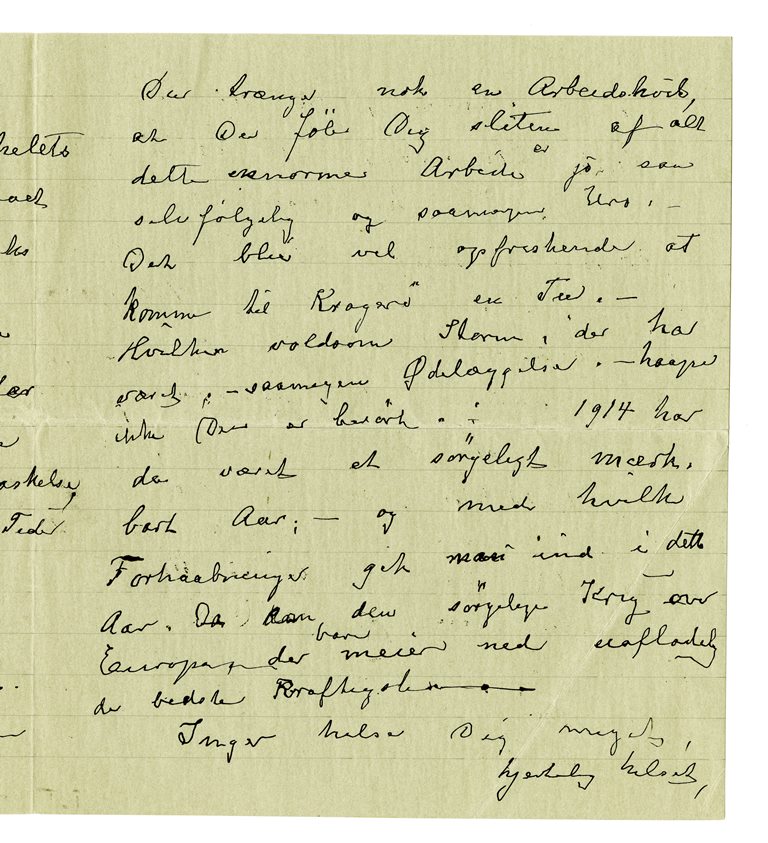 kelets
Du trænger nok en Arbeidshvile,
at Du føler Dig sliten af alt
dette enorme Arbeide er jo saa
selvfølgelig og saamegen Uro. –
Det blir vel opfriskende at
komme til Kragerø en Tur. –
Hvilken voldsom Storm, der har
været, – saamegen Ødelæggelse. – haaper
ikke Du er berørt. 1914 har
da været et sørgeligt mærk-
bart Aar; – og med hvilke
Forhaabninger gik man ind i dette
Aar. Da kom den sørgelige Krig over
Europa, der bare meier ned uafladelig
de bedste Kraftigste
Inger hilser Dig meget,
hjertelig hilset,